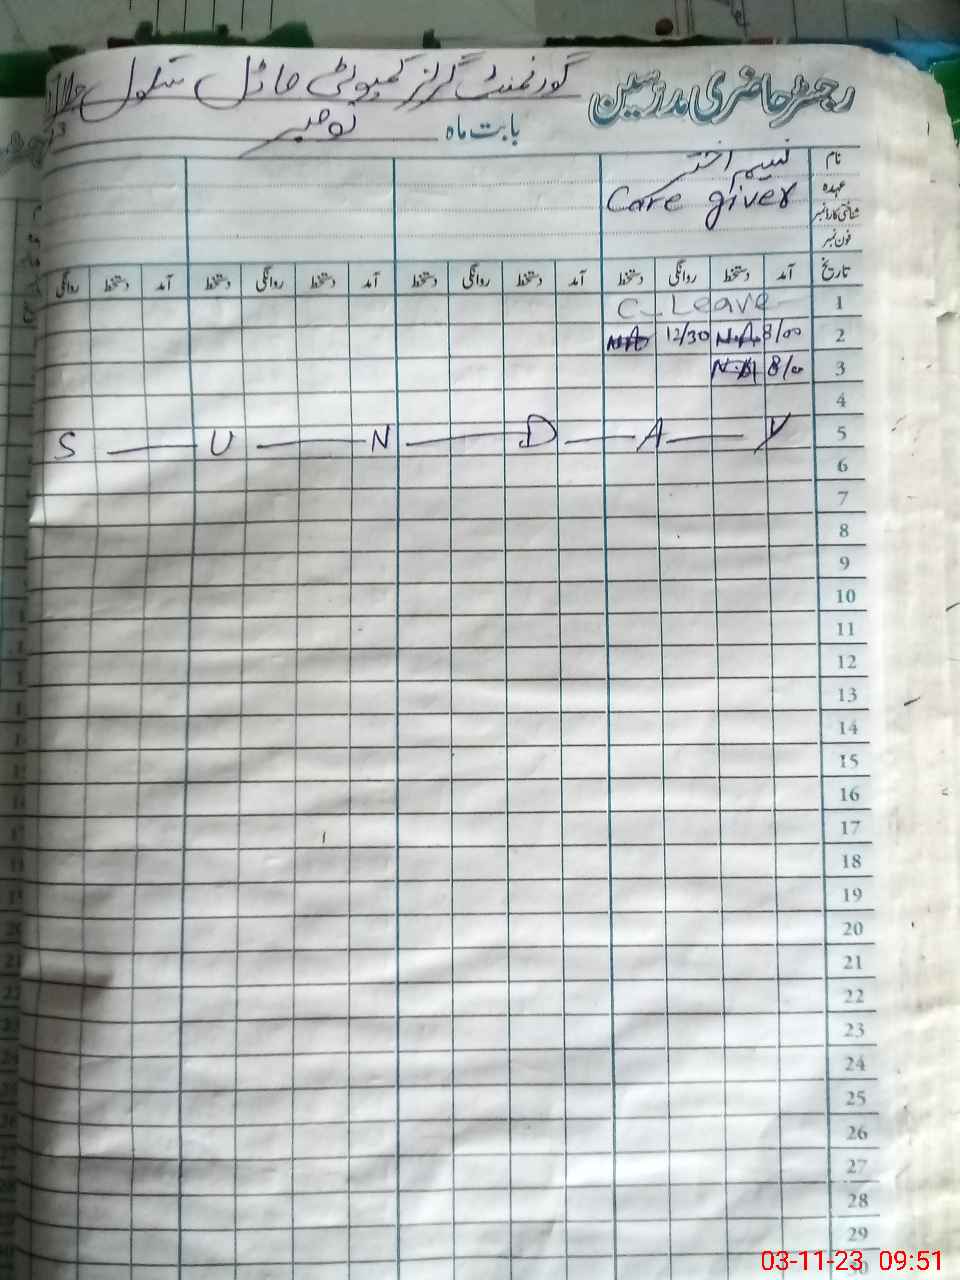 رجسٹر حاضری مدرسین گورنمنٹ گرلز کمیونٹی ماڈل سکول
بابت ماہ نومبر
نام نسیم اختر
عہدہ Care giver
شناختی کارڈ نمبر
فون نمبر
تاریخ آمد دستخط روانگی دستخط آمد دستخط روانگی دستخط آمد دستخط روانگی دستخط آمد دستخط روانگی
1 C_Leave
2 8/00 N.A 12/30 NA
3 8/00 N.A
4
5 S — U — N — D — A — Y
6
7
8
9
10
11
12
13
14
15
16
17
18
19
20
21
22
23
24
25
26
27
28
29
30
03-11-23 09:51